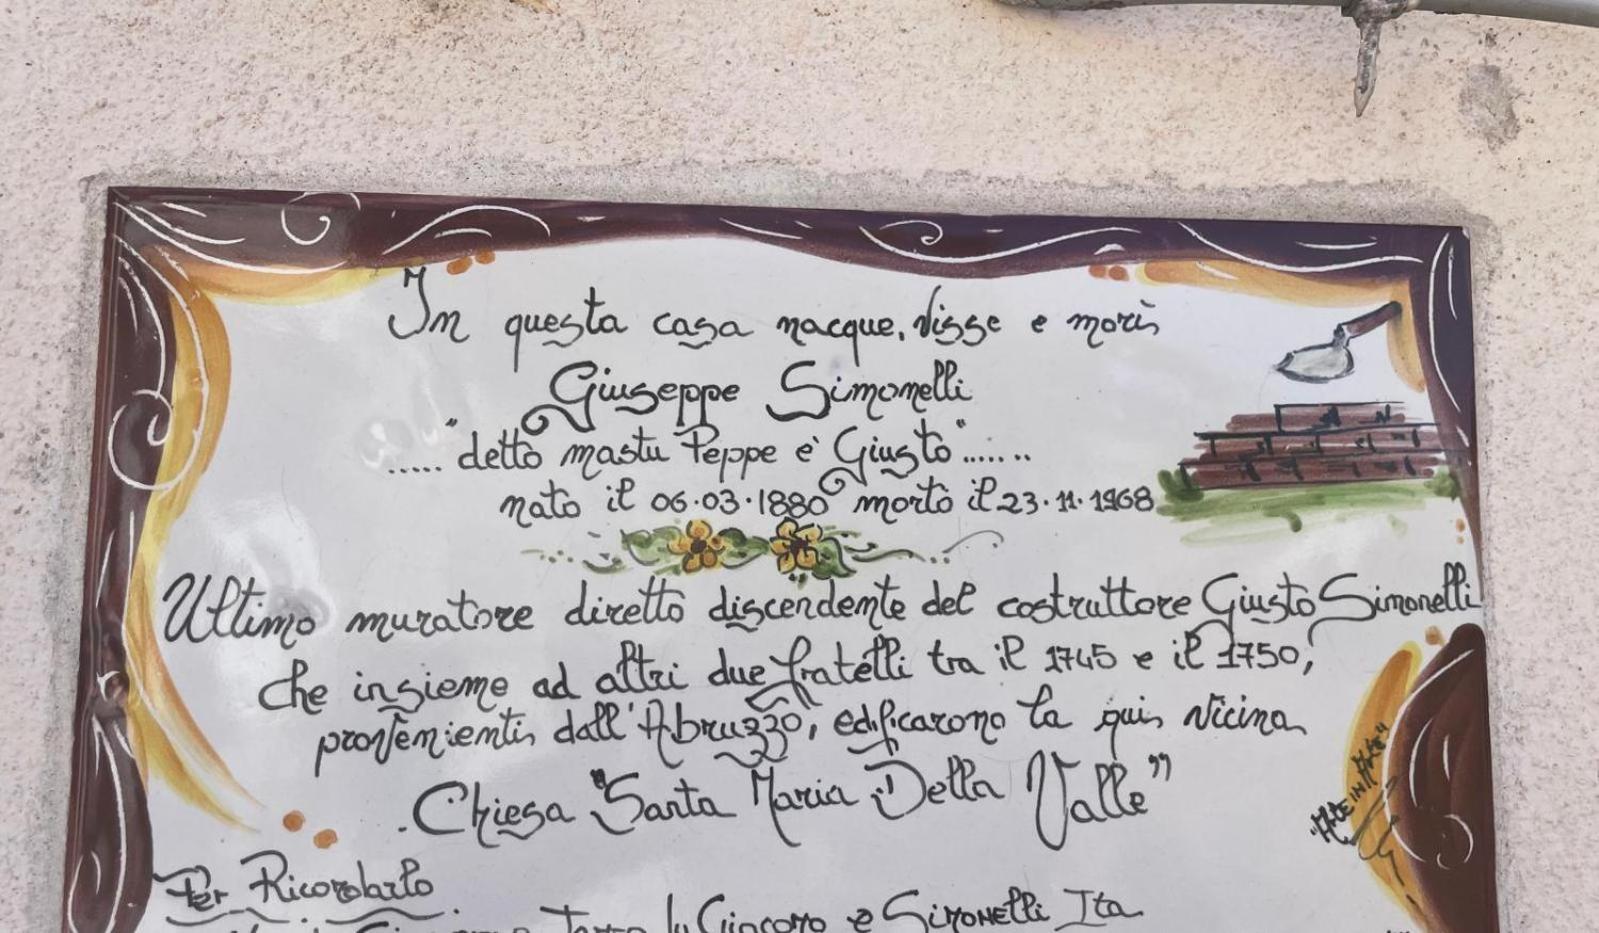 In questa casa nacque, visse e morì
Giuseppe Simonelli
....."detto mastu Peppe è Giusto"......
nato il 06.03.1880 morto il 23.11.1968
Ultimo muratore diretto discendente del costruttore Giusto Simonelli
che insieme ad altri due fratelli tra il 1745 e il 1750,
provenienti dall'Abruzzo, edificarono la qui vicina
Chiesa "Santa Maria Della Valle"
Per Ricordarlo
Giacomo e Simonelli Ita